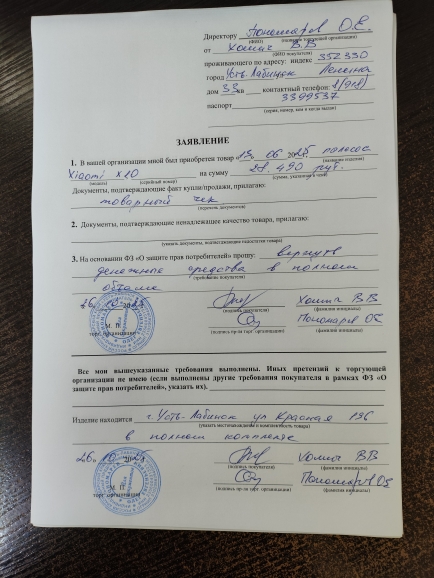 Директору Пономарёв О.Е.
(ФИО) (название торговой организации)
от Хомич В.В
(ФИО покупателя)
проживающего по адресу: индекс 352330
город Усть-Лабинск Ленина
дом 33 кв контактный телефон: 8(918)
паспорт 3399537
(серия, номер, кем и когда выдан)
ЗАЯВЛЕНИЕ
1. В вашей организации мной был приобретен товар «13» 06 2025 пылесос
(название изделия)
Xiaomi X20 на сумму 28,490 руб.
(модель) (серийный номер) (сумма, указанная в чеке)
Документы, подтверждающие факт купли/продажи, прилагаю:
товарный чек
(перечень документов)
2. Документы, подтверждающие ненадлежащее качество товара, прилагаю:
(указать документы, подтверждающие недостатки товара)
3. На основании ФЗ «О защите прав потребителей» прошу: вернуть
денежные средства в полном
(требование покупателя)
объёме
26. 10. 2025 Хомич В В
(подпись покупателя) (фамилия инициалы)
М. П. Пономарёв ОЕ
торг. организации (подпись пр-ля торг. организации) (фамилия инициалы)
Все мои вышеуказанные требования выполнены. Иных претензий к торгующей
организации не имею (если выполнены другие требования покупателя в рамках ФЗ «О
защите прав потребителей», указать их).
Изделие находится г. Усть-Лабинск ул Красная
(указать местонахождение и комплектность товара)
в полном комплекте
26. 10. Хомич ВВ
(подпись покупателя) (фамилия инициалы)
М. П. Пономарёв ОЕ
торг. организации (подпись пр-ля торг. организации) (фамилия инициалы)